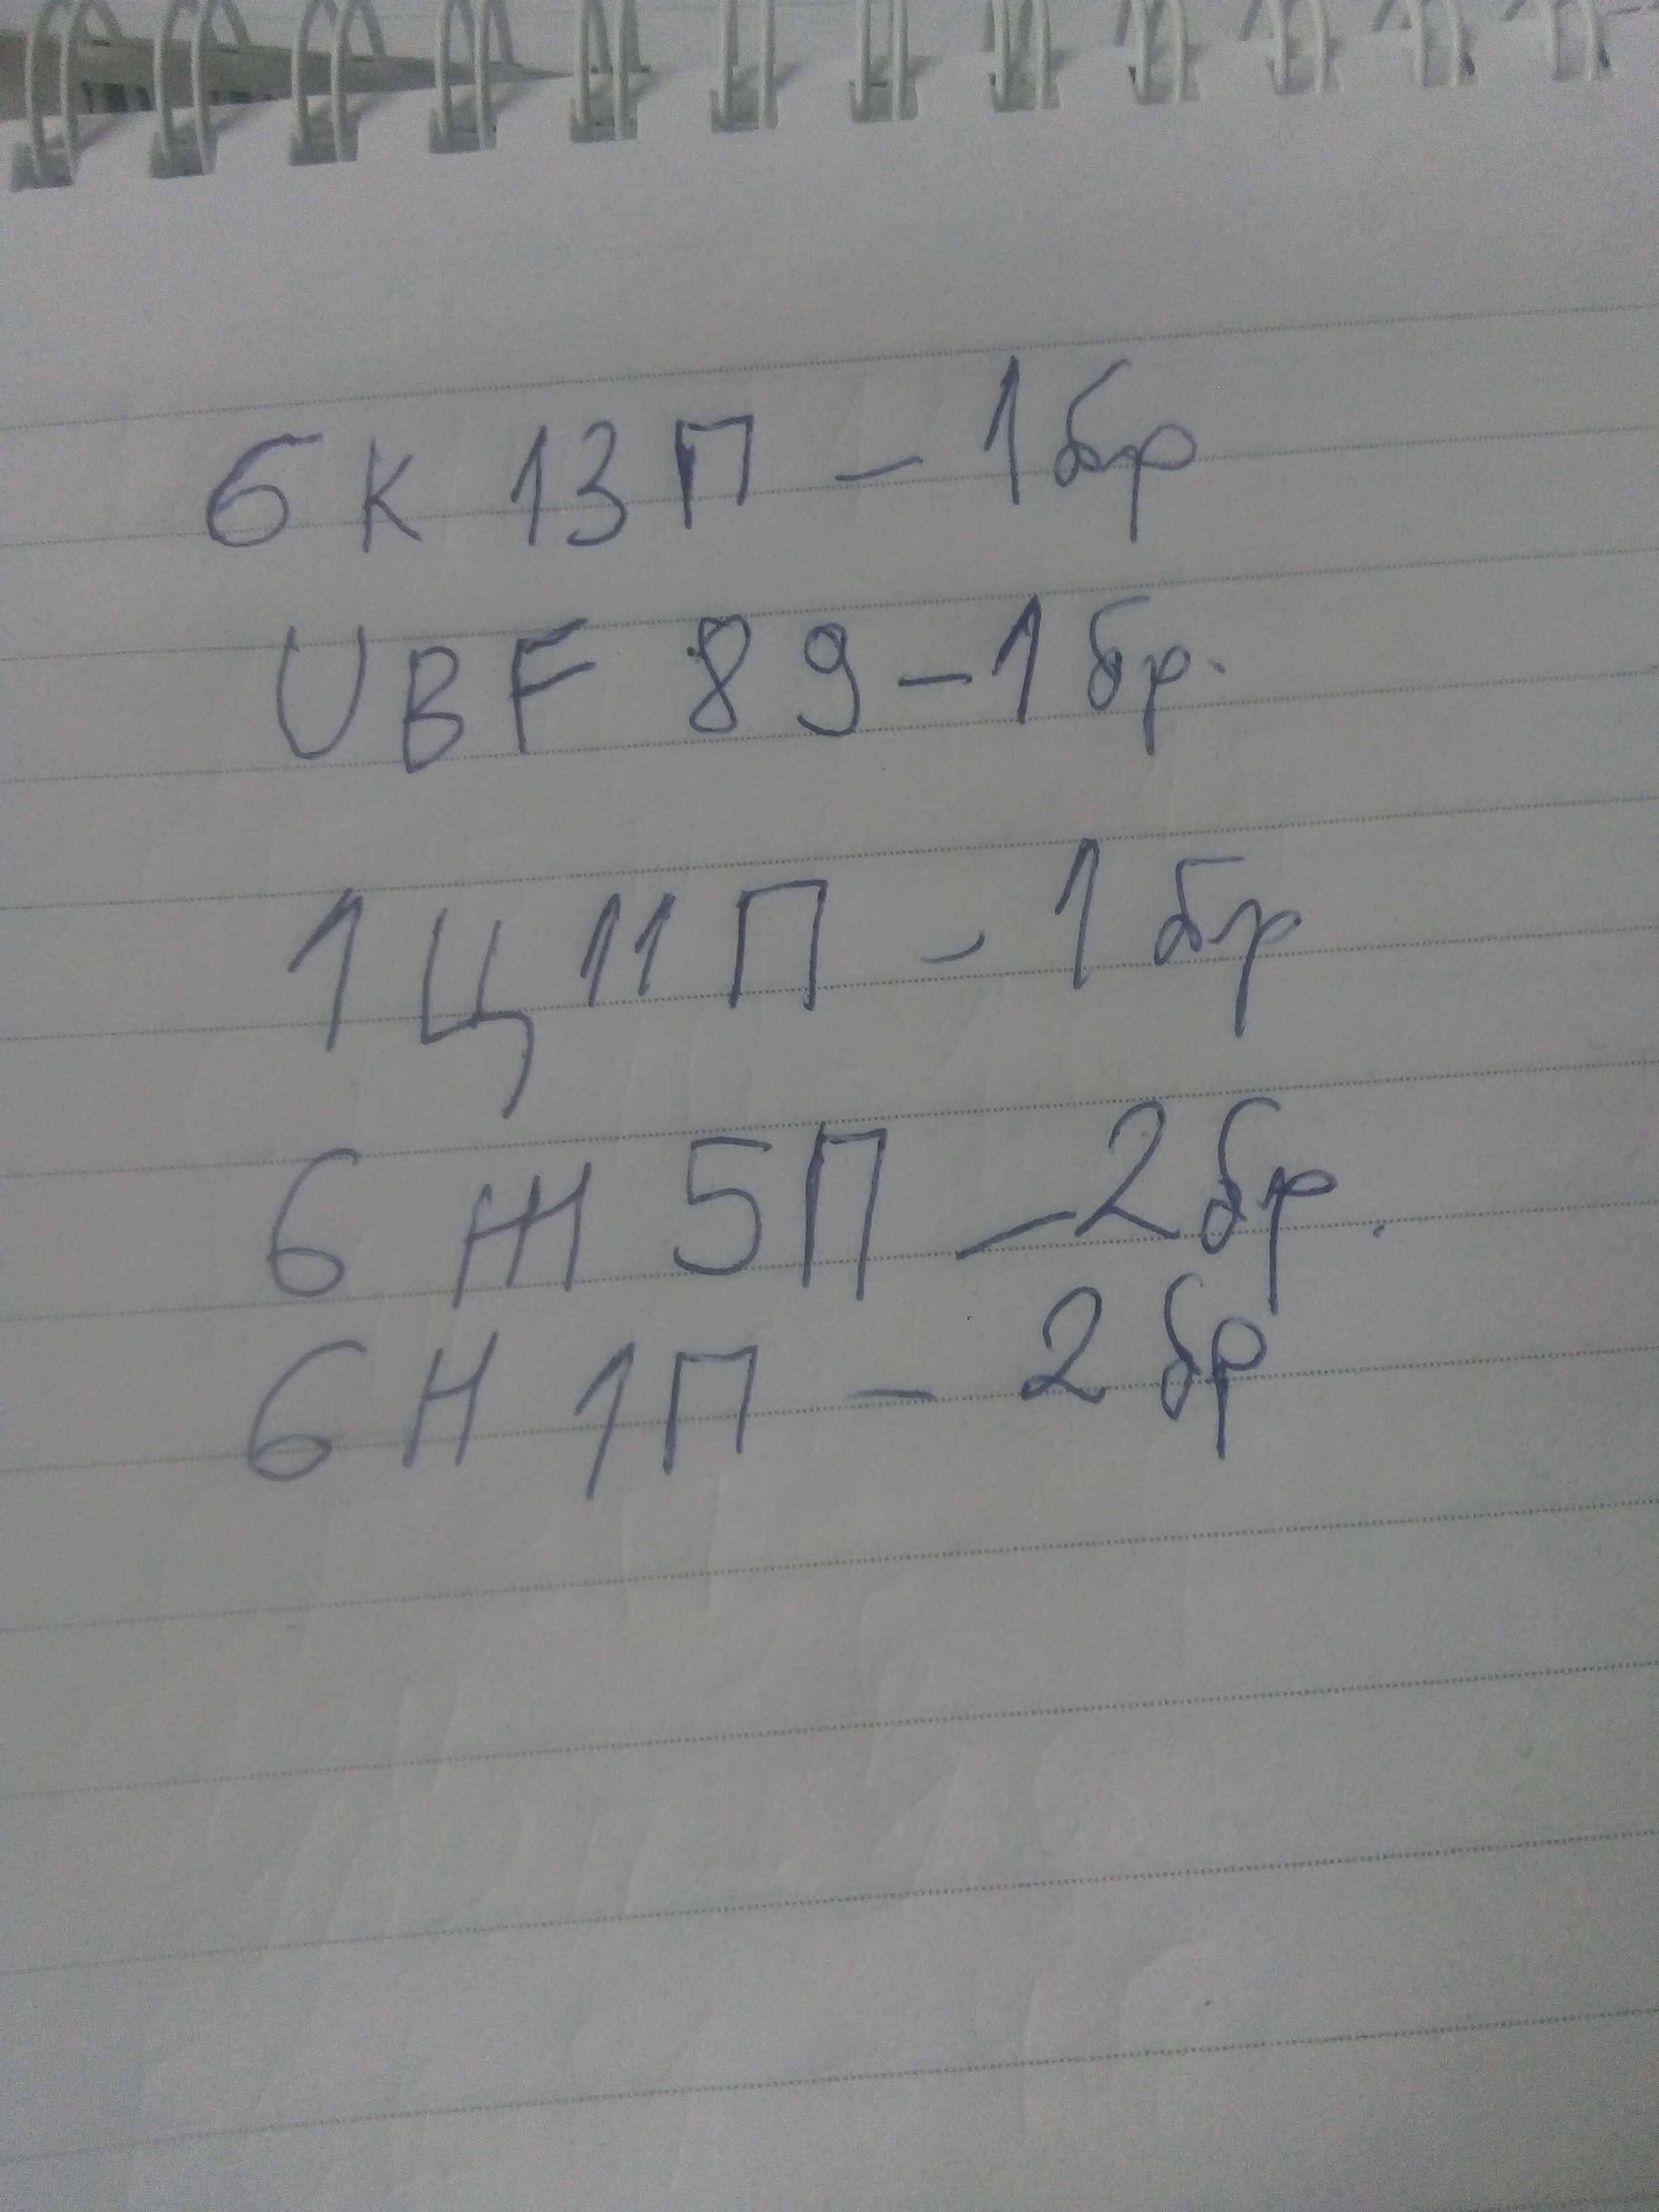 6К 13П - 1бр
UBF 89 - 1 бр.
1Ц11П - 1 бр
6Ж5П - 2бр.
6Н 1П - 2 бр